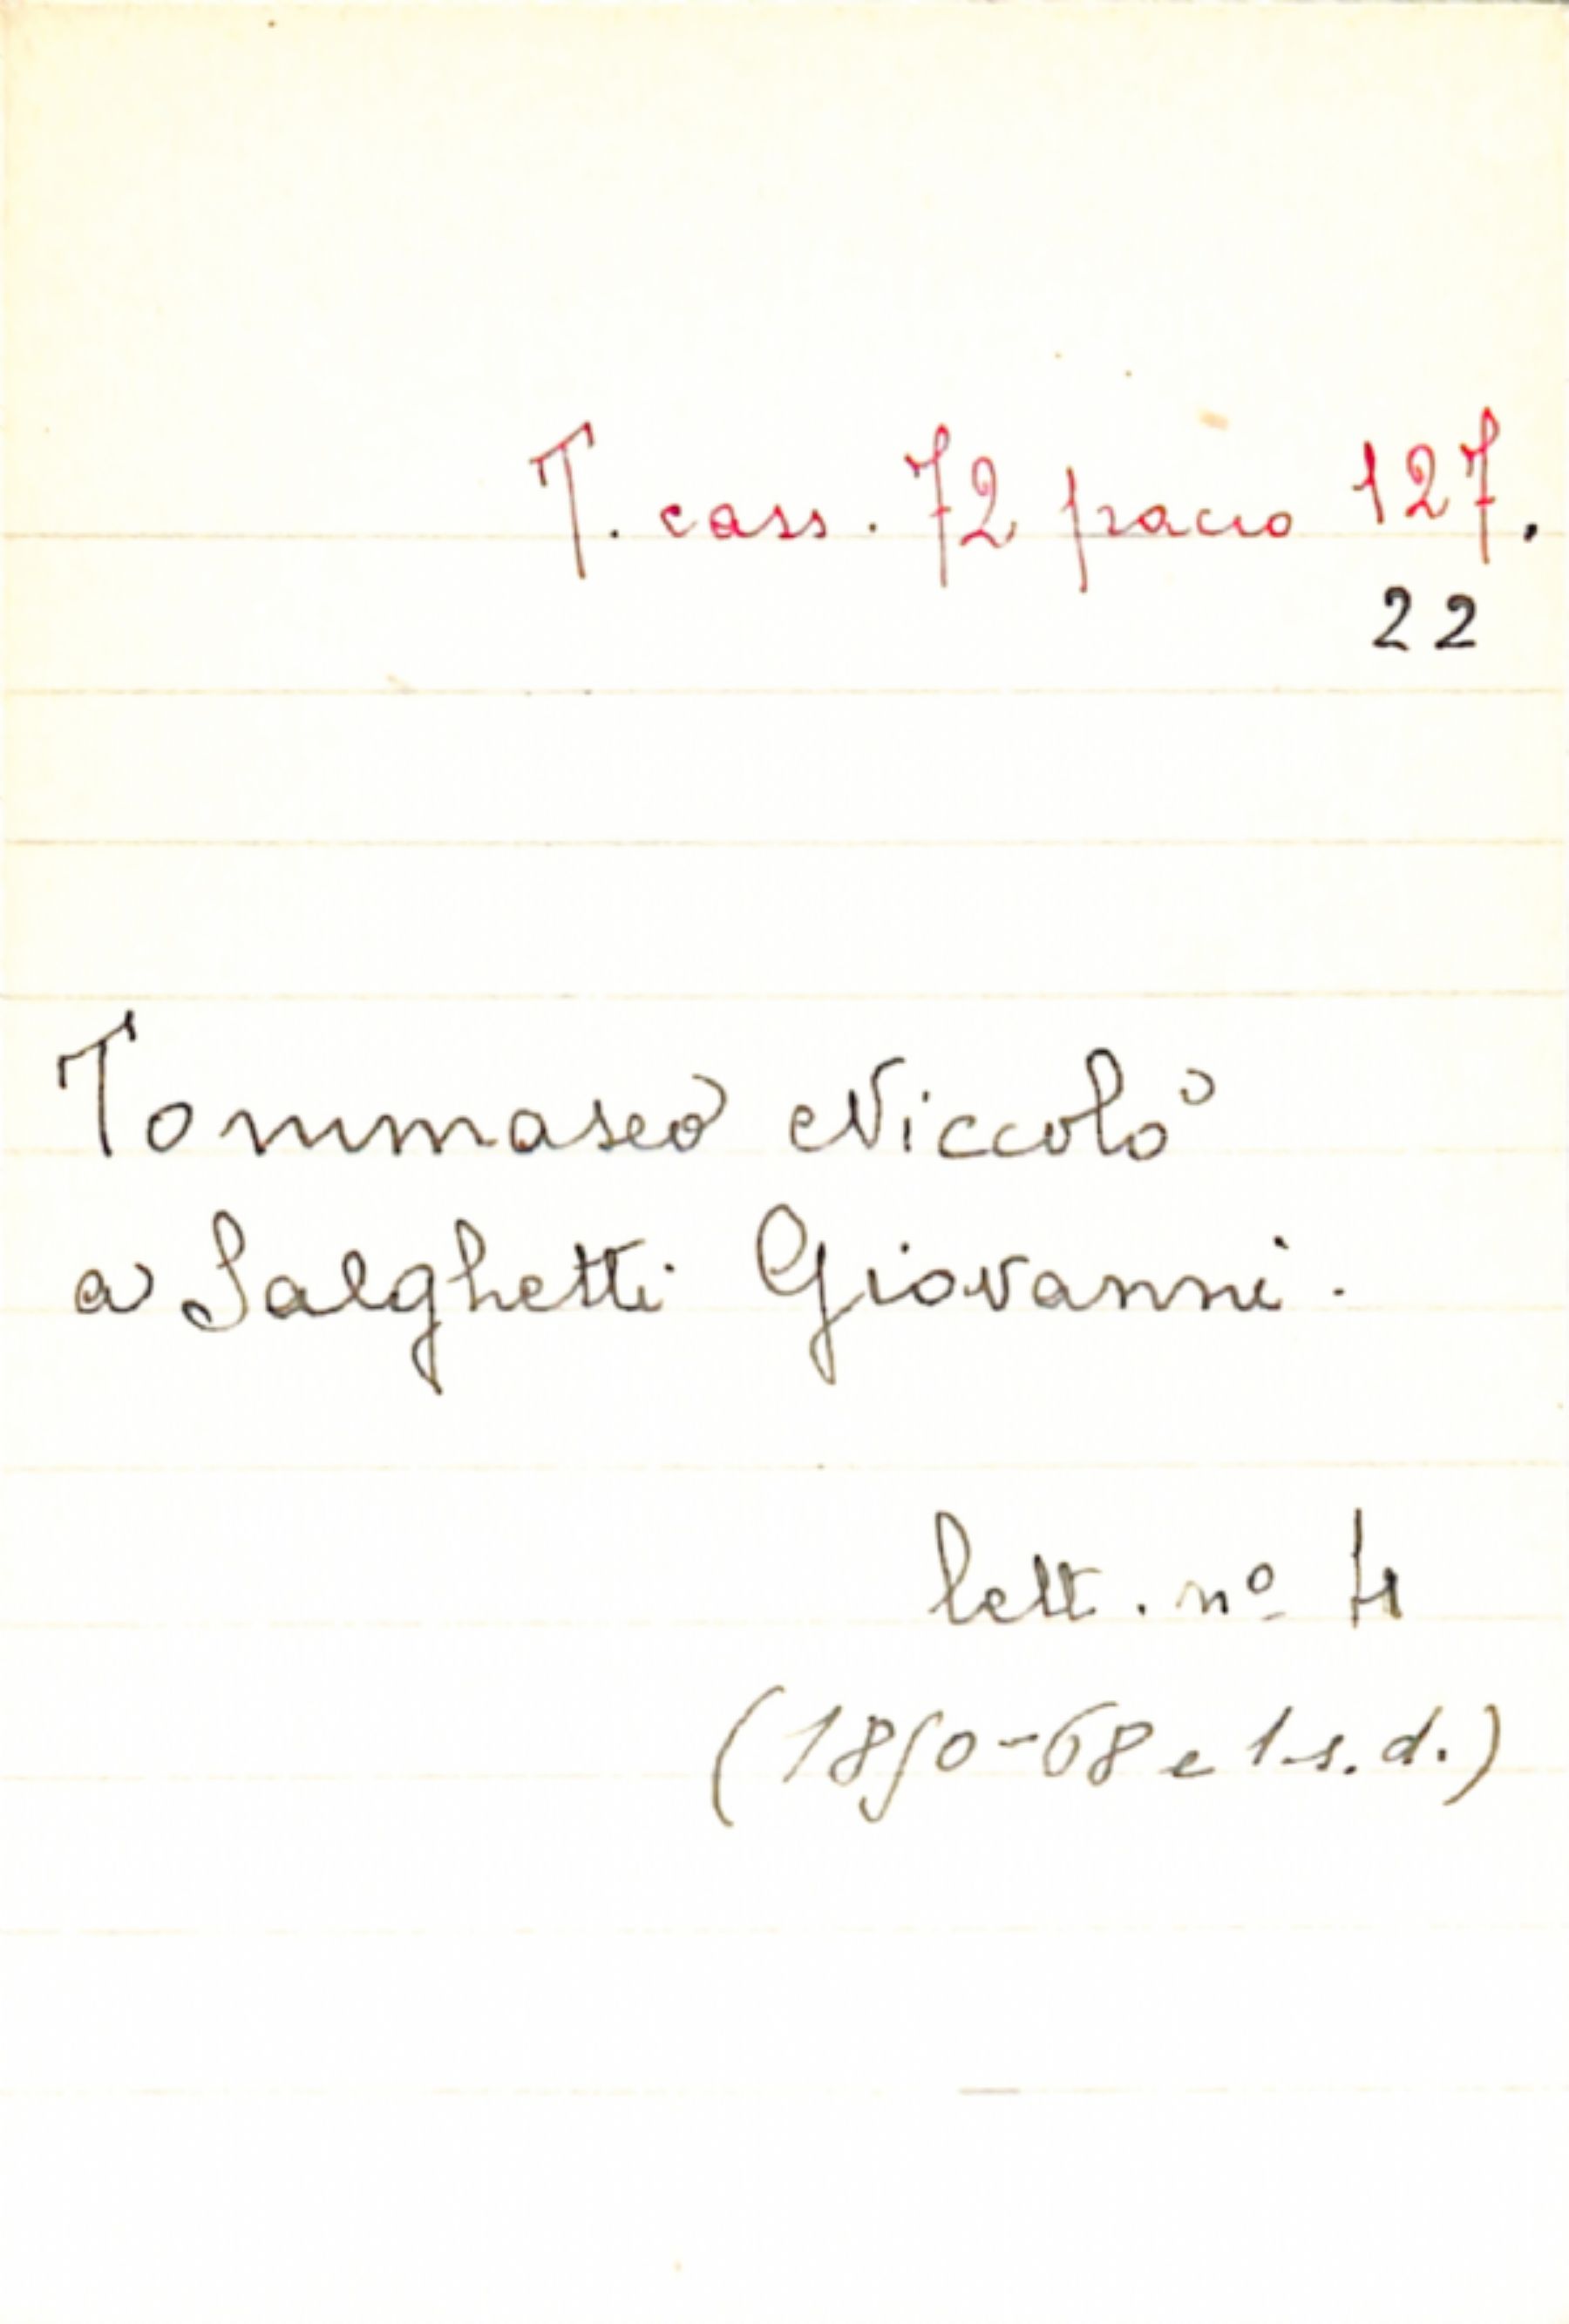 T. cass. 72 pacco 127.
22
Tommaseo Niccolò
a Salghetti Giovanni.
lett. nº 4
(1850-68 e 1 s. d.)